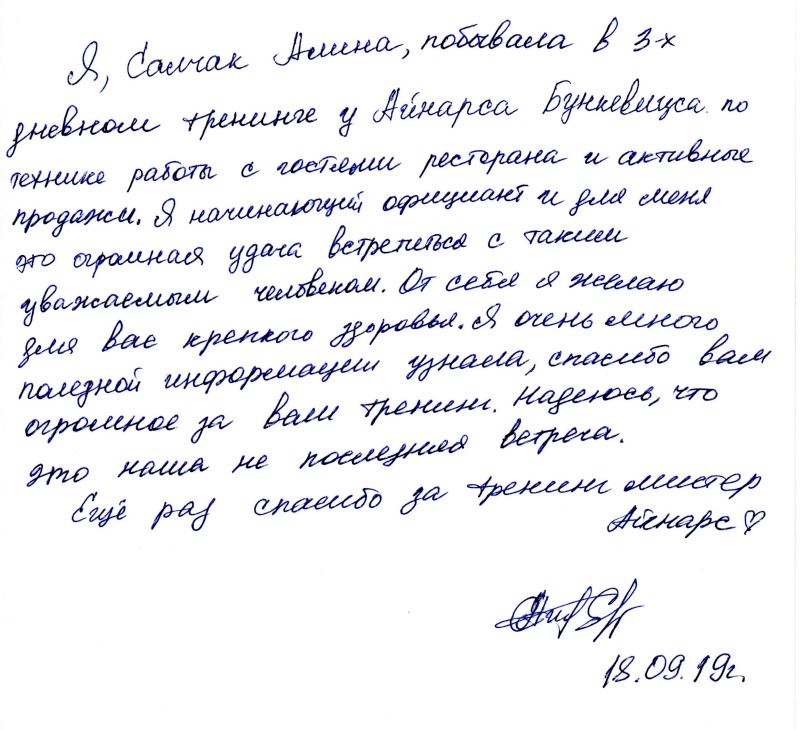 Я, Салчак Алина, побывала в 3-х
дневном тренинге у Айнарса Бункевицса по
технике работы с гостями ресторана и активные
продажи. Я начинающий официант и для меня
это огромная удача встретиться с таким
уважаемым человеком. От себя я желаю
для вас крепкого здоровья. Я очень много
полезной информации узнала, спасибо вам
огромное за ваш тренинг. Надеюсь, что
это наша не последняя встреча.
Ещё раз спасибо за тренинг мистер
Айнарс ♡
18.09.19г.